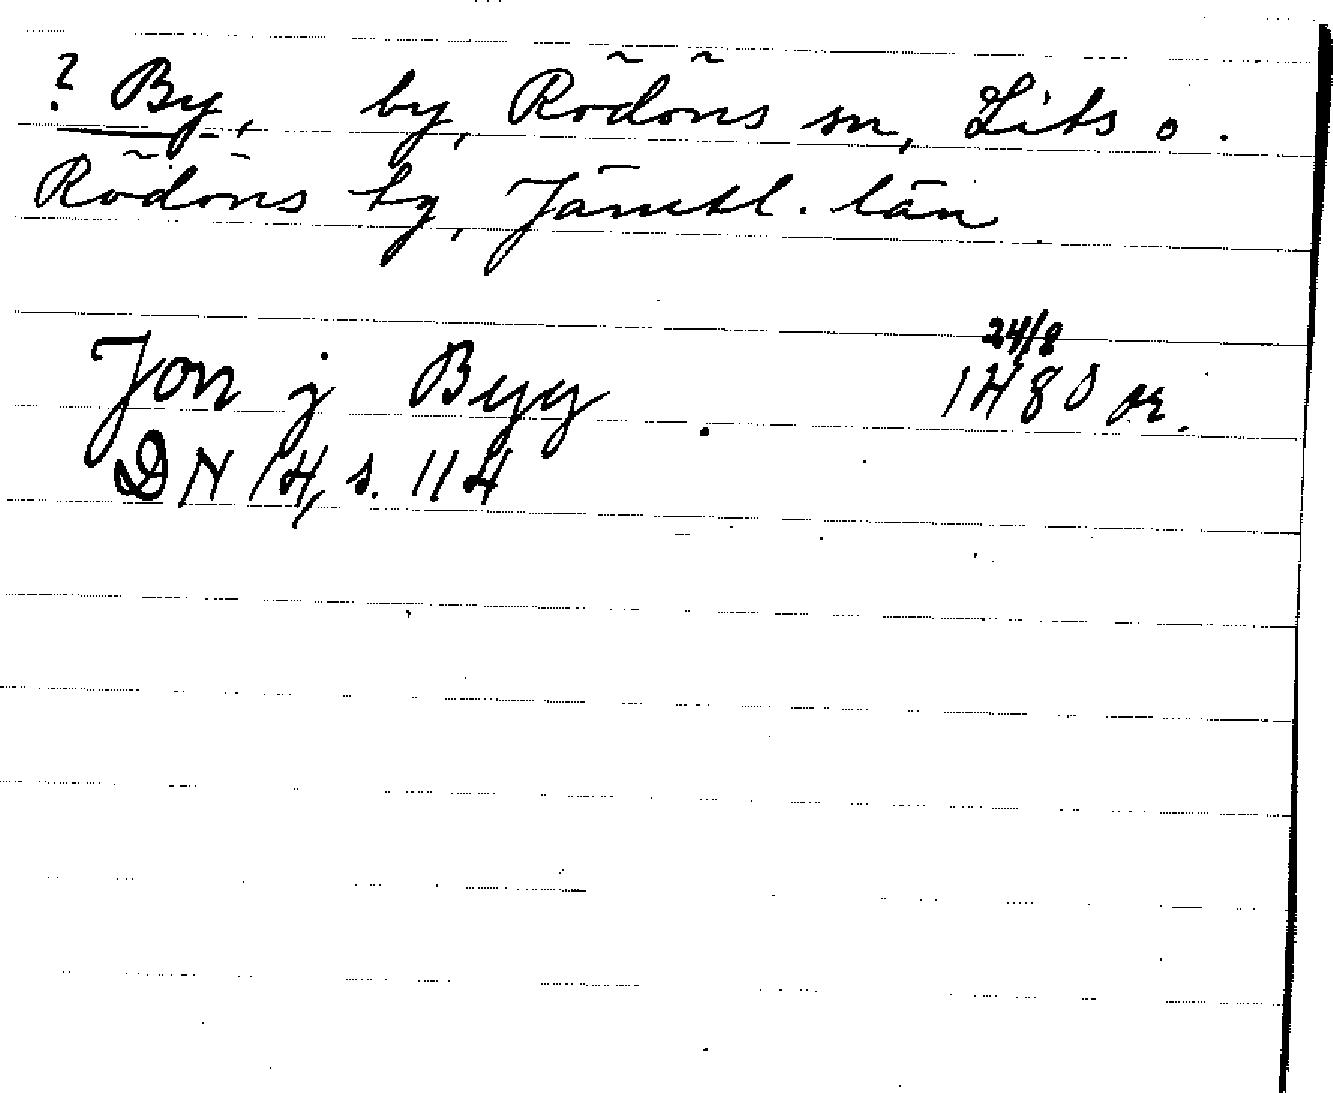 ? By, by, Rödöns sn, Lits o.
Rödöns hg, Jämtl. län
24/8
Jon j Byy 1480 or.
DN 14, s. 114